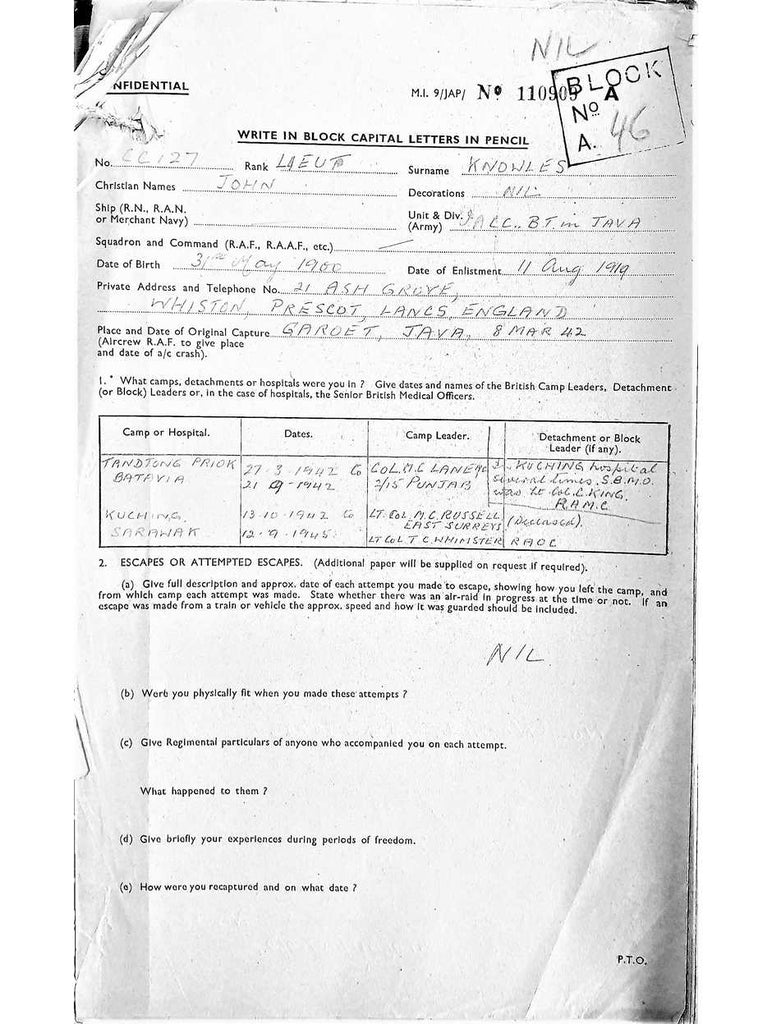 NIL
NFIDENTIAL
M.I. 9/JAP/ Nº 110905 A
BLOCK
Nº
A. 46
WRITE IN BLOCK CAPITAL LETTERS IN PENCIL
No. CC 127 Rank LIEUT Surname KNOWLES
Christian Names JOHN Decorations NIL
Ship (R.N., R.A.N.
or Merchant Navy)
Unit & Div.
(Army) B.T. in JAVA
Squadron and Command (R.A.F., R.A.A.F., etc.)
Date of Birth 31st May 1900 Date of Enlistment 11 Aug 1919
Private Address and Telephone No. 21 ASH GROVE,
WHISTON, PRESCOT, LANCS, ENGLAND
Place and Date of Original Capture GAROET, JAVA, 8 MAR 42
(Aircrew R.A.F. to give place
and date of a/c crash).
1. * What camps, detachments or hospitals were you in ? Give dates and names of the British Camp Leaders, Detachment
(or Block) Leaders or, in the case of hospitals, the Senior British Medical Officers.
Camp or Hospital. Dates. Camp Leader. Detachment or Block
Leader (if any).
TANDTONG PRIOK 27-3-1942 to COL. M.C LANE 2/ KUCHING hospital
BATAVIA 21-9-1942 2/15 PUNJAB several times. S.B.M.O.
was Lt Col. C. KING.
R.A.M.C
KUCHING 13-10-1942 to LT. COL. M.C. RUSSELL (Deceased).
SARAWAK 12-9-1945 EAST SURREYS
LT COL T C WHIMSTER RAOC
2. ESCAPES OR ATTEMPTED ESCAPES. (Additional paper will be supplied on request if required).
(a) Give full description and approx. date of each attempt you made to escape, showing how you left the camp, and
from which camp each attempt was made. State whether there was an air-raid in progress at the time or not. If an
escape was made from a train or vehicle the approx. speed and how it was guarded should be included.
NIL
(b) Were you physically fit when you made these attempts ?
(c) Give Regimental particulars of anyone who accompanied you on each attempt.
What happened to them ?
(d) Give briefly your experiences during periods of freedom.
(e) How were you recaptured and on what date ?
P.T.O.